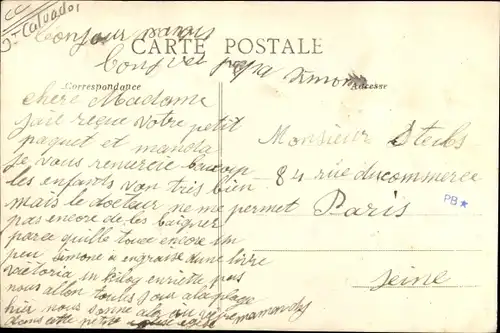 CC
Calvados
bonjour
CARTE POSTALE
Correspondance
Adresse
Chère Madame
jait reçue votre petit
paquet et manola
je vous remercie baucoup
les enfants von tris bien
mais le docteur ne me permet
pas encore de les baigner
parce quille touce encore un
peu Simone a engraisse dune livre
victoria un kilog enriette pas
nous allon toutes jour a la plage
hier nous
dans cette petite église
Monsieur
84 rue du commerce
Paris
Seine
PB